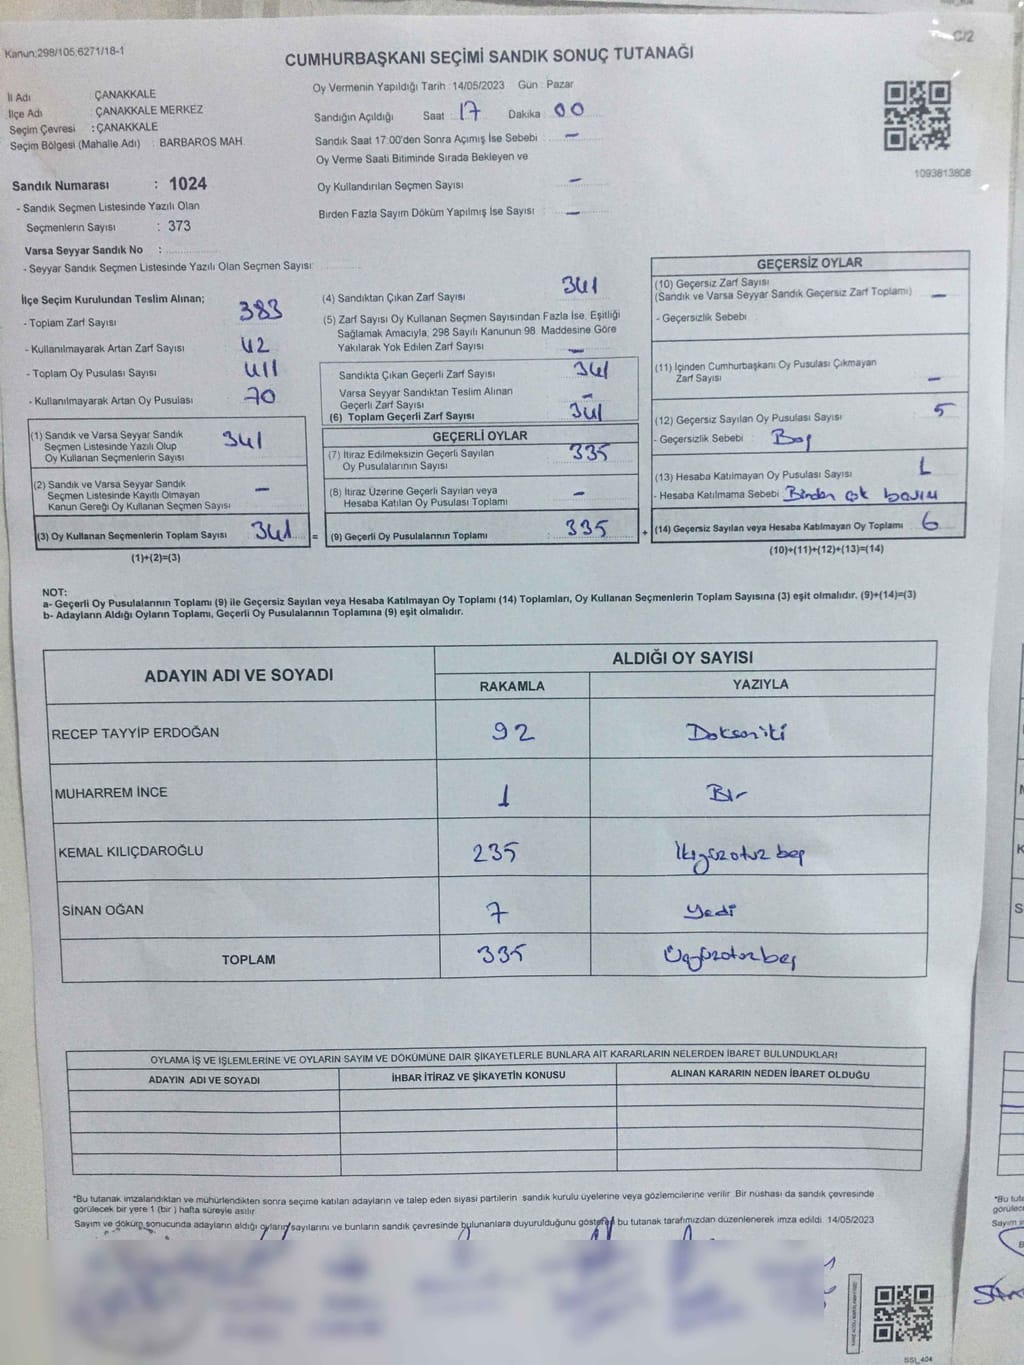 C/2
Kanun;298/105;6271/18-1
CUMHURBAŞKANI SEÇİMİ SANDIK SONUÇ TUTANAĞI
İl Adı : ÇANAKKALE
İlçe Adı : ÇANAKKALE MERKEZ
Seçim Çevresi : ÇANAKKALE
Seçim Bölgesi (Mahalle Adı) : BARBAROS MAH.
Oy Vermenin Yapıldığı Tarih : 14/05/2023 Gün : Pazar
Sandığın Açıldığı Saat : 17 Dakika : 00
Sandık Saat 17:00'den Sonra Açımış İse Sebebi : —
Oy Verme Saati Bitiminde Sırada Bekleyen ve
Oy Kullandırılan Seçmen Sayısı —
Birden Fazla Sayım Döküm Yapılmış İse Sayısı : —
1093813808
Sandık Numarası : 1024
- Sandık Seçmen Listesinde Yazılı Olan
Seçmenlerin Sayısı : 373
Varsa Seyyar Sandık No :
- Seyyar Sandık Seçmen Listesinde Yazılı Olan Seçmen Sayısı:
İlçe Seçim Kurulundan Teslim Alınan;
- Toplam Zarf Sayısı 383
- Kullanılmayarak Artan Zarf Sayısı 42
- Toplam Oy Pusulası Sayısı 411
- Kullanılmayarak Artan Oy Pusulası 70
(1) Sandık ve Varsa Seyyar Sandık
Seçmen Listesinde Yazılı Olup
Oy Kullanan Seçmenlerin Sayısı 341
(2) Sandık ve Varsa Seyyar Sandık
Seçmen Listesinde Kayıtlı Olmayan
Kanun Gereği Oy Kullanan Seçmen Sayısı —
(3) Oy Kullanan Seçmenlerin Toplam Sayısı 341 =
(1)+(2)=(3)
(4) Sandıktan Çıkan Zarf Sayısı 341
(5) Zarf Sayısı Oy Kullanan Seçmen Sayısından Fazla İse, Eşitliği
Sağlamak Amacıyla; 298 Sayılı Kanunun 98. Maddesine Göre
Yakılarak Yok Edilen Zarf Sayısı —
Sandıkta Çıkan Geçerli Zarf Sayısı 341
Varsa Seyyar Sandıktan Teslim Alınan
Geçerli Zarf Sayısı —
(6) Toplam Geçerli Zarf Sayısı 341
GEÇERLİ OYLAR
(7) İtiraz Edilmeksizin Geçerli Sayılan
Oy Pusulalarının Sayısı 335
(8) İtiraz Üzerine Geçerli Sayılan veya
Hesaba Katılan Oy Pusulası Toplamı —
(9) Geçerli Oy Pusulalarının Toplamı : 335 +
GEÇERSİZ OYLAR
(10) Geçersiz Zarf Sayısı
(Sandık ve Varsa Seyyar Sandık Geçersiz Zarf Toplamı) —
- Geçersizlik Sebebi
(11) İçinden Cumhurbaşkanı Oy Pusulası Çıkmayan
Zarf Sayısı —
(12) Geçersiz Sayılan Oy Pusulası Sayısı 5
- Geçersizlik Sebebi Boş
(13) Hesaba Katılmayan Oy Pusulası Sayısı 1
- Hesaba Katılmama Sebebi Birden çok basım
(14) Geçersiz Sayılan veya Hesaba Katılmayan Oy Toplamı 6
(10)+(11)+(12)+(13)=(14)
NOT:
a- Geçerli Oy Pusulalarının Toplamı (9) ile Geçersiz Sayılan veya Hesaba Katılmayan Oy Toplamı (14) Toplamları, Oy Kullanan Seçmenlerin Toplam Sayısına (3) eşit olmalıdır. (9)+(14)=(3)
b- Adayların Aldığı Oyların Toplamı, Geçerli Oy Pusulalarının Toplamına (9) eşit olmalıdır.
ADAYIN ADI VE SOYADI
ALDIĞI OY SAYISI
RAKAMLA YAZIYLA
RECEP TAYYİP ERDOĞAN 92 Doksaniki
MUHARREM İNCE 1 Bir
KEMAL KILIÇDAROĞLU 235 İkiyüzotuz beş
SİNAN OĞAN 7 Yedi
TOPLAM 335 Üçyüzotuzbeş
OYLAMA İŞ VE İŞLEMLERİNE VE OYLARIN SAYIM VE DÖKÜMÜNE DAİR ŞİKAYETLERLE BUNLARA AİT KARARLARIN NELERDEN İBARET BULUNDUKLARI
ADAYIN ADI VE SOYADI İHBAR İTİRAZ VE ŞİKAYETİN KONUSU ALINAN KARARIN NEDEN İBARET OLDUĞU
*Bu tutanak imzalandıktan ve mühürlendikten sonra seçime katılan adayların ve talep eden siyasi partilerin sandık kurulu üyelerine veya gözlemcilerine verilir. Bir nüshası da sandık çevresinde
görülecek bir yere 1 (bir ) hafta süreyle asılır.
Sayım ve döküm sonucunda adayların aldığı oyların sayılarını ve bunların sandık çevresinde bulunanlara duyurulduğunu gösteren bu tutanak tarafımızdan düzenlenerek imza edildi. 14/05/2023
SSL_404